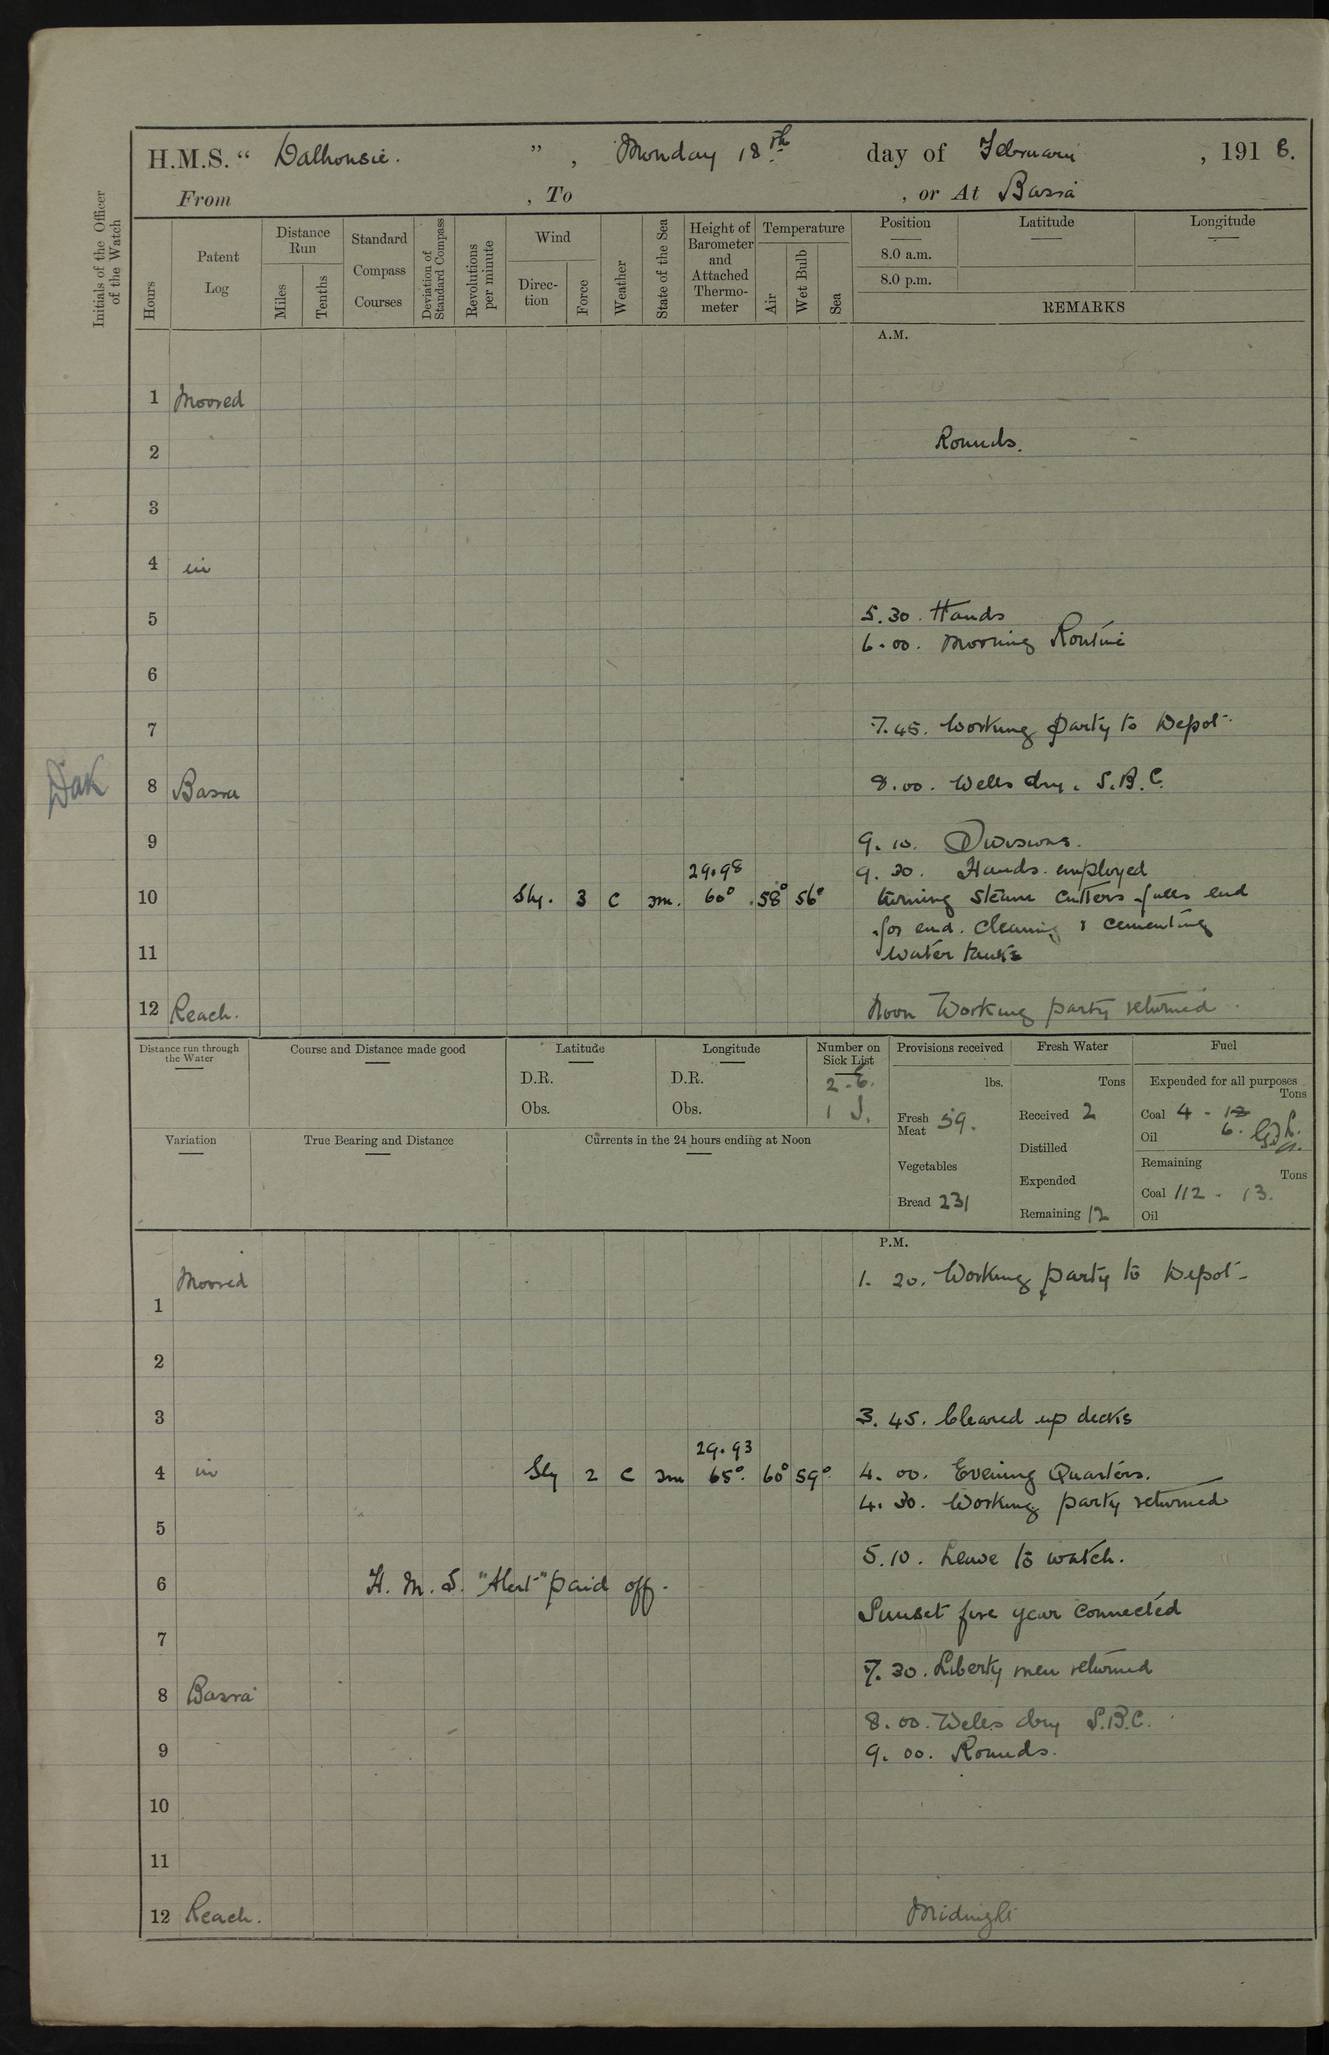 H.M.S. " Dalhousie. " , Monday 18th day of February , 1918.
From , To , or At Basra
Initials of the Officer of the Watch
Hours
Patent Log
Distance Run
Miles
Tenths
Standard Compass Courses
Deviation of Standard Compass
Revolutions per minute
Wind
Direction
Force
Weather
State of the Sea
Height of Barometer and Attached Thermometer
Temperature
Air
Wet Bulb
Sea
Position
Latitude
Longitude
8.0 a.m.
8.0 p.m.
REMARKS
A.M.
1 Moored
2 Rounds.
3
4 in
5 5.30. Hands
6.00. Morning Routine
6
7 7.45. Working party to Depot.
8 Basra 8.00. Wells dry. S.B.C.
9 9.10. Divisions.
29.98 9.30. Hands employed
10 Sly. 3 c sm. 60° 58° 56° turning steam cutters falls end
for end. Cleaning & cementing
11 water tanks
12 Reach. Noon Working party returned
Distance run through the Water
Course and Distance made good
Latitude
D.R.
Obs.
Longitude
D.R.
Obs.
Number on Sick List
2 . E.
1 I.
Provisions received
lbs.
Fresh Meat 59.
Vegetables
Bread 231
Fresh Water
Tons
Received 2
Distilled
Expended
Remaining 12
Fuel
Expended for all purposes
Tons
Coal 4 - 13
Oil 6.
Remaining
Tons
Coal 112 - 13.
Oil
Variation
True Bearing and Distance
Currents in the 24 hours ending at Noon
P.M.
Moored 1. 20. Working party to Depot.
1
2
3 3. 45. Cleared up decks
29.93
4 in Sly 2 c sm 65°. 60° 59° 4. 00. Evening Quarters.
4. 30. Working party returned
5
5.10. Leave to watch.
6 H. M. S. "Alert" paid off.
Sunset fire gear connected
7
7. 30. Liberty men returned
8 Basra
8. 00. Wells dry S.B.C.
9 9. 00. Rounds.
10
11
12 Reach. Midnight